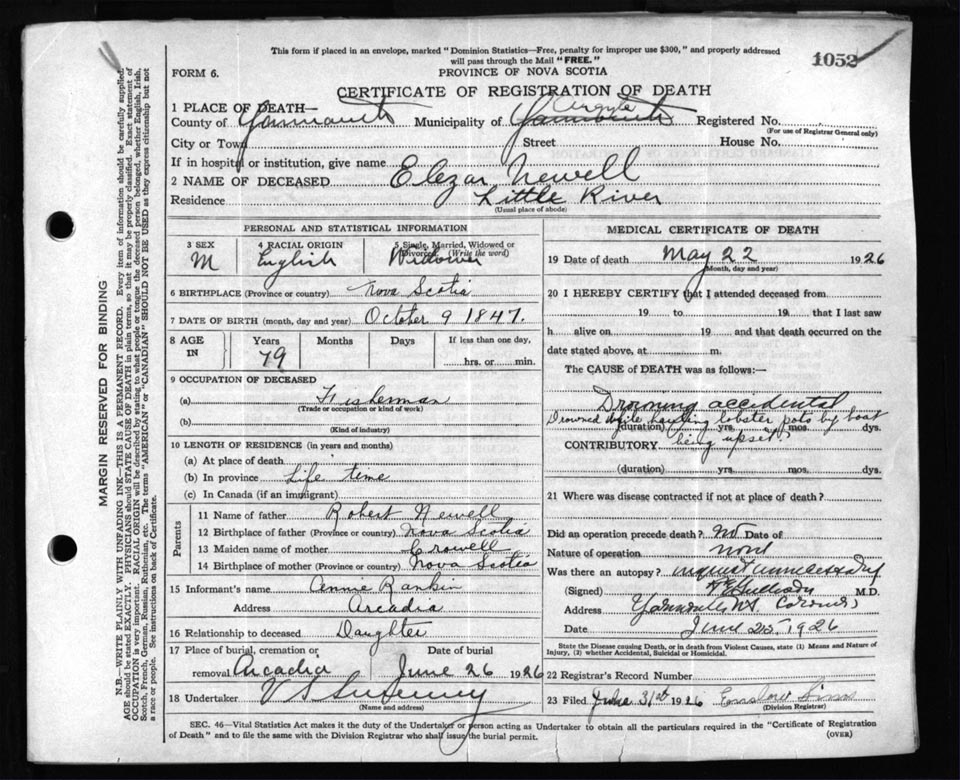 This form if placed in an envelope, marked "Dominion Statistics—Free, penalty for improper use $300," and properly addressed
will pass through the Mail "FREE."
1052
FORM 6.
PROVINCE OF NOVA SCOTIA
CERTIFICATE OF REGISTRATION OF DEATH
1 PLACE OF DEATH—
Argyle
County of Yarmouth Municipality of Yarmouth Registered No.
(For use of Registrar General only)
City or Town Street House No.
If in hospital or institution, give name
2 NAME OF DECEASED Elezar Newell
Residence Little River
(Usual place of abode)
PERSONAL AND STATISTICAL INFORMATION
3 SEX 4 RACIAL ORIGIN 5 Single, Married, Widowed or
Divorced (Write the word)
M English Widower
6 BIRTHPLACE (Province or country) Nova Scotia
7 DATE OF BIRTH (month, day and year) October 9 1847.
8 AGE IN Years Months Days If less than one day,
79 hrs. or min.
9 OCCUPATION OF DECEASED
(a) Fisherman
(Trade or occupation or kind of work)
(b)
(Kind of industry)
10 LENGTH OF RESIDENCE (in years and months)
(a) At place of death
(b) In province Life time
(c) In Canada (if an immigrant)
Parents
11 Name of father Robert Newell
12 Birthplace of father (Province or country) Nova Scotia
13 Maiden name of mother Crowell
14 Birthplace of mother (Province or country) Nova Scotia
15 Informant's name Annie Rankin
Address Arcadia
16 Relationship to deceased Daughter
17 Place of burial, cremation or Date of burial
removal Arcadia June 26 1926
18 Undertaker V S Sweeney
(Name and address)
MEDICAL CERTIFICATE OF DEATH
19 Date of death May 22 1926
(Month, day and year)
20 I HEREBY CERTIFY that I attended deceased from
19 to 19 that I last saw
h alive on 19 and that death occurred on the
date stated above, at m.
The CAUSE OF DEATH was as follows:—
Drowning accidental
Drowned while hauling lobster pots by boat
(duration) yrs. mos. dys.
CONTRIBUTORY being upset
(duration) yrs. mos. dys.
21 Where was disease contracted if not at place of death?
Did an operation precede death? No Date of
Nature of operation none
Was there an autopsy? inquest unnecessary
(Signed) M.D.
Address Coroner
Date June 25, 1926
State the Disease causing Death, or in death from Violent Causes, state (1) Means and Nature of
Injury, (2) whether Accidental, Suicidal or Homicidal.
22 Registrar's Record Number
23 Filed 31st 1926
(Division Registrar)
SEC. 46—Vital Statistics Act makes it the duty of the Undertaker or person acting as Undertaker to obtain all the particulars required in the "Certificate of Registration
of Death" and to file the same with the Division Registrar who shall issue the burial permit.
(OVER)
MARGIN RESERVED FOR BINDING
N.B.—WRITE PLAINLY WITH UNFADING INK—THIS IS A PERMANENT RECORD. Every item of information should be carefully supplied.
AGE should be stated EXACTLY. PHYSICIANS should STATE CAUSE OF DEATH in plain terms, so that it may be properly classified. Exact statement of
OCCUPATION is very important. RACIAL ORIGIN will be described by stating to what people or tongue the deceased person belonged, whether English, Irish,
Scotch, French, German, Russian, Ruthenian, etc. The terms "AMERICAN" or "CANADIAN" SHOULD NOT BE USED as they express citizenship but not
a race or people. See instructions on back of Certificate.